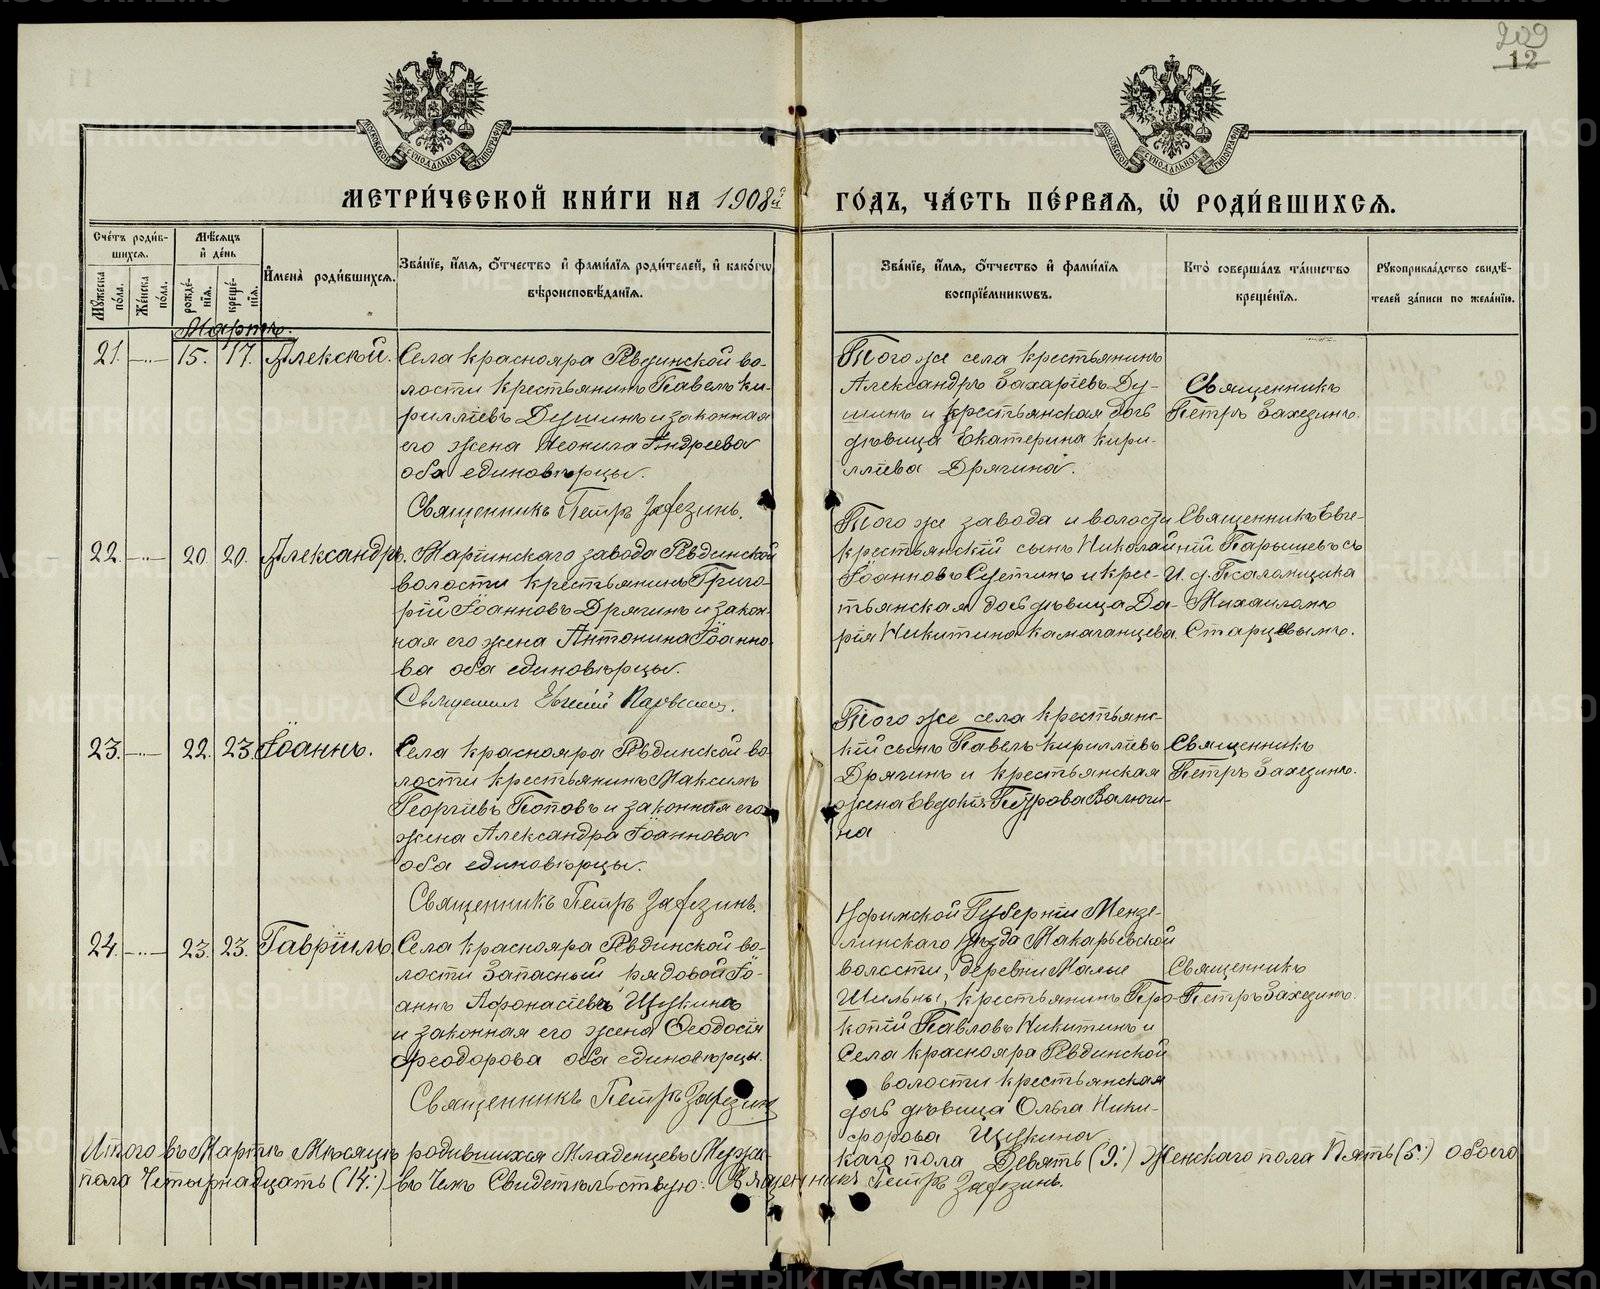 209
12
МЕТРИ́ЧЕСКОЙ КНИ́ГИ НА 1908й
ГО́ДЪ, ЧА́СТЬ ПЕ́РВАЯ, Ѡ҆ РОДИ́ВШИХСѦ.
Сче́тъ роди́вшихсѧ.
Мꙋ́жеска по́ла.
Же́нска по́ла.
Мѣ́сѧцъ и҆ де́нь
рожде́нїѧ.
креще́нїѧ.
И҆мена̀ роди́вшихсѧ.
Зва́нїе, и҆́мѧ, ѻ҆́тчество и҆ фами́лїѧ роди́телей, и҆ како́гѡ
вѣроисповѣ́данїѧ.
Зва́нїе, и҆́мѧ, ѻ҆́тчество и҆ фами́лїѧ
воспрїе́мникѡвъ.
Кто̀ соверша́лъ та́инство
креще́нїѧ.
Рꙋкоприкла́дство свидѣ́-
телей за́писи по жела́нїю.
Мартъ.
21. 15. 17. Алексѣй.
Села Краснояра Ревдинской во-
лости крестьянинъ Павелъ Ки-
рилліевъ Душинъ и законная
его жена Неонила Андреева
оба единовѣрцы.
Священникъ Петръ Захезинъ.
Того же села крестьянинъ
Александръ Захаріевъ Ду-
шинъ и крестьянская дочь
дѣвица Екатерина Кири-
лліева Дрягина.
Священникъ
Петръ Захезинъ.
22. 20. 20. Александръ.
Маріинскаго завода Ревдинской
волости крестьянинъ Григо-
рій Іоанновъ Дрягинъ и закон-
ная его жена Антонина Іоанно-
ва оба единовѣрцы.
Священникъ Евгеній Парышевъ.
Того же завода и волости
крестьянскій сынъ Николай
Іоанновъ Суетинъ и кре-
тьянская дочь дѣвица Да-
рія Никитина Камаганцева
Священникъ Евге-
ній Парышевъ съ
И. д. Псаломщика
Михаиломъ
Старцевымъ.
23. 22. 23. Іоаннъ.
Села Краснояра Ревдинской во-
лости крестьянинъ Максимъ
Георгіевъ Поповъ и законная его
жена Александра Іоаннова
оба единовѣрцы.
Священникъ Петръ Захезинъ.
Того же села крестьянс-
кій сынъ Павелъ Кирилліевъ
Дрягинъ и крестьянская
жена Евдокія Петрова Валюги-
на
Священникъ
Петръ Захезинъ.
24. 23. 23. Гавріилъ.
Села Краснояра Ревдинской во-
лости Запасный рядовой Іо-
аннъ Афонасіевъ Щукинъ
и законная его жена Ѳеодосія
Ѳеодорова оба единовѣрцы.
Священникъ Петръ Захезинъ
Уфимской Губерніи Мензе-
линскаго Уѣзда Макарьевской
волости, деревни Малые
Шильны, крестьянинъ Про-
копій Павловъ Никитинъ и
Села Краснояра Ревдинской
волости крестьянская
дочь дѣвица Ольга Ники-
форова Щукина
Священникъ
Петръ Захезинъ.
Итого въ Мартѣ Мѣсяцѣ родившихся Младенцевъ Мужс-
каго пола Девять (9:) Женскаго пола Пять (5:) Обоего
пола Четырнадцать (14:) въ Чемъ Свидетельствую: Священникъ Петръ Захезинъ.
METRIKI.GASO-URAL.RU